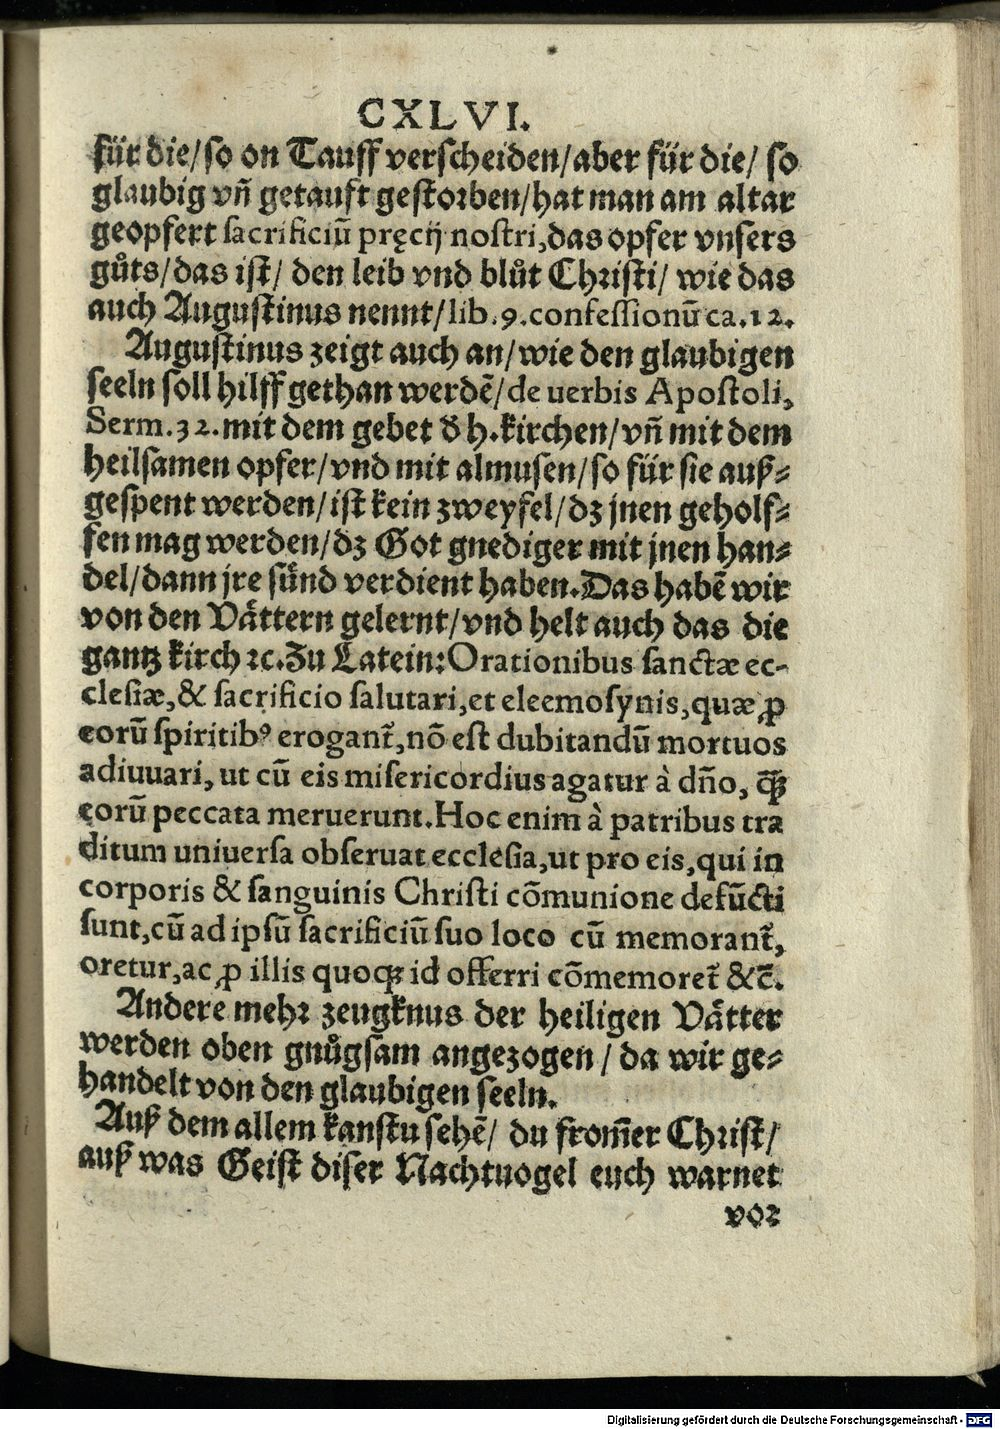 CXLVI.
für die/so on Tauff verscheiden/aber für die/ so
glaubig vñ getauft gestorben/hat man am altar
geopfert sacrificiũ pręcij nostri,das opfer vnsers
gůts/das ist/ den leib vnd blůt Christi/ wie das
auch Augustinus nennt/lib.9.confessionũ ca.12.
Augustinus zeigt auch an/wie den glaubigen
seeln soll hilff gethan werdẽ/de uerbis Apostoli,
Serm.32.mit dem gebet d̕ h.kirchen/vñ mit dem
heilsamen opfer/vnd mit almusen/so für sie auß-
gespent werden/ist kein zweyfel/dz jnen geholf-
fen mag werden/dz Got gnediger mit jnen han-
del/dann jre sünd verdient haben.Das habẽ wir
von den Vättern gelernt/vnd helt auch das die
gantz kirch ꝛc.Zu Latein:Orationibus sanctæ ec-
clesiæ,& sacrificio salutari,et eleemosynis,quæ ꝓ
eorũ spiritibꝰ erogant᷑,nõ est dubitandũ mortuos
adiuuari, ut cũ eis misericordius agatur à dño, ꝙ̃
eorũ peccata meruerunt.Hoc enim à patribus tra
ditum uniuersa obseruat ecclesia,ut pro eis,qui in
corporis & sanguinis Christi cõmunione defũcti
sunt,cũ ad ipsũ sacrificiũ suo loco cũ memorant᷑,
oretur,ac ꝓ illis quoqꝫ id offerri cõmemoret᷑ &c̃.
Andere mehr zeugknus der heiligen Vätter
werden oben gnůgsam angezogen / da wir ge-
handelt von den glaubigen seeln.
Auß dem allem kanstu sehẽ/ du from̃er Christ/
auß was Geist diser Nachtuogel euch warnet
vor
Digitalisierung gefördert durch die Deutsche Forschungsgemeinschaft - DFG